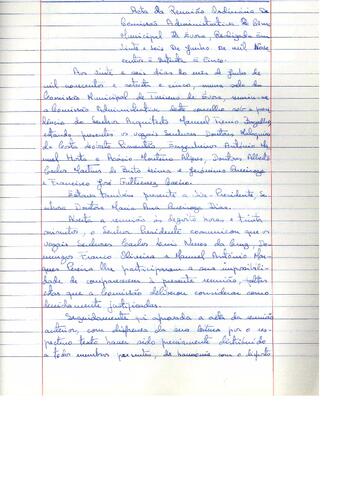 Acta da Reunião Ordinária da
Comissão Administrativa da Câmara
Municipal de Évora, Realizada em
Vinte e seis de Junho de mil nove
centos e setenta e cinco.
Aos vinte e seis dias do mês de Junho de
mil novecentos e setenta e cinco, numa sala da
Comissão Municipal de Turismo de Évora, reuniu-se
a Comissão Administrativa deste concelho sob a pre
sidência do Senhor Arquitecto Manuel
estando presentes os vogais Senhores Doutores
da Costa Pimentel, Engenheiros António Ma
nuel e Martins Alves, Doutores Alfredo
Carlos de Brito e Jerónimo
e Francisco José
Estava também presente a Vice-Presidente, Se
nhora Doutora Maria Ana Dias.
Aberta a reunião às dezoito horas e trinta
minutos, o Senhor Presidente comunicou que os
vogais Senhores Carlos Nunes da Cruz, Do
mingos Franco Oliveira e Manuel António Mar
ques Pereira lhe participaram a sua impossibili
dade de comparecerem à presente reunião, faltas
estas que a Comissão deliberou considerar como
devidamente justificadas.
Seguidamente foi aprovada a acta da reunião
anterior, com dispensa da sua leitura por o res
pectivo texto haver sido previamente distribuído
a todos membros presentes, de harmonia com o disposto